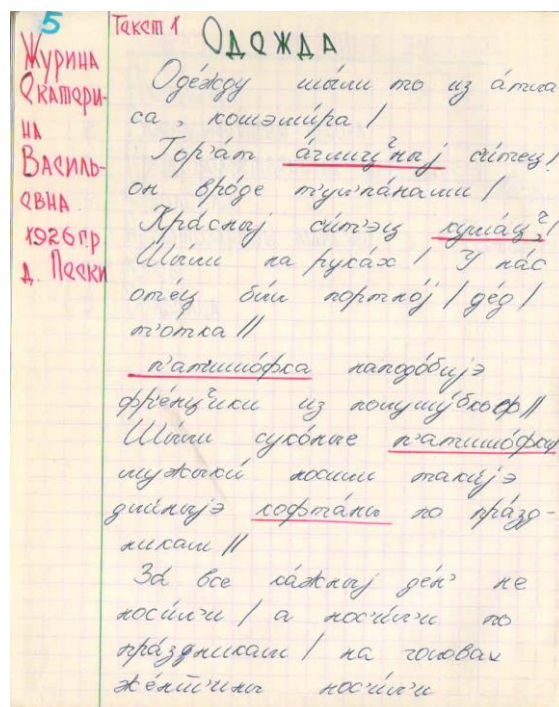 5
Журина
Екатери-
на
Василь-
евна
1926г.р
д. Пески
Текст 1
Одежда
Оде́жду шы́ли то из а́тла
са, кошэми́ра /
Гор'а́т а́глицᶣныј си́тец /
он вро́де т'ул'па́нами /
Кра́сныј си́т'эц кума́цᶣ /
Шы́ли на рука́х / У на́с
оте́ц бы́л портно́ј / де́д /
т'о́тка //
п'атишо́фка наподо́бијэ
фре́нцᶣики из полушу́бкоф //
Шы́ли суко́ные п'атишо́фки
мужыки́ носили таки́јэ
дли́ныјэ кофта́ны по пра́зд-
никам //
За́ все ка́жныј де́н' не
носи́л'и / а нос'и́л'и по
пра́здникам / на головах
же́нш'ины нос'и́л'и